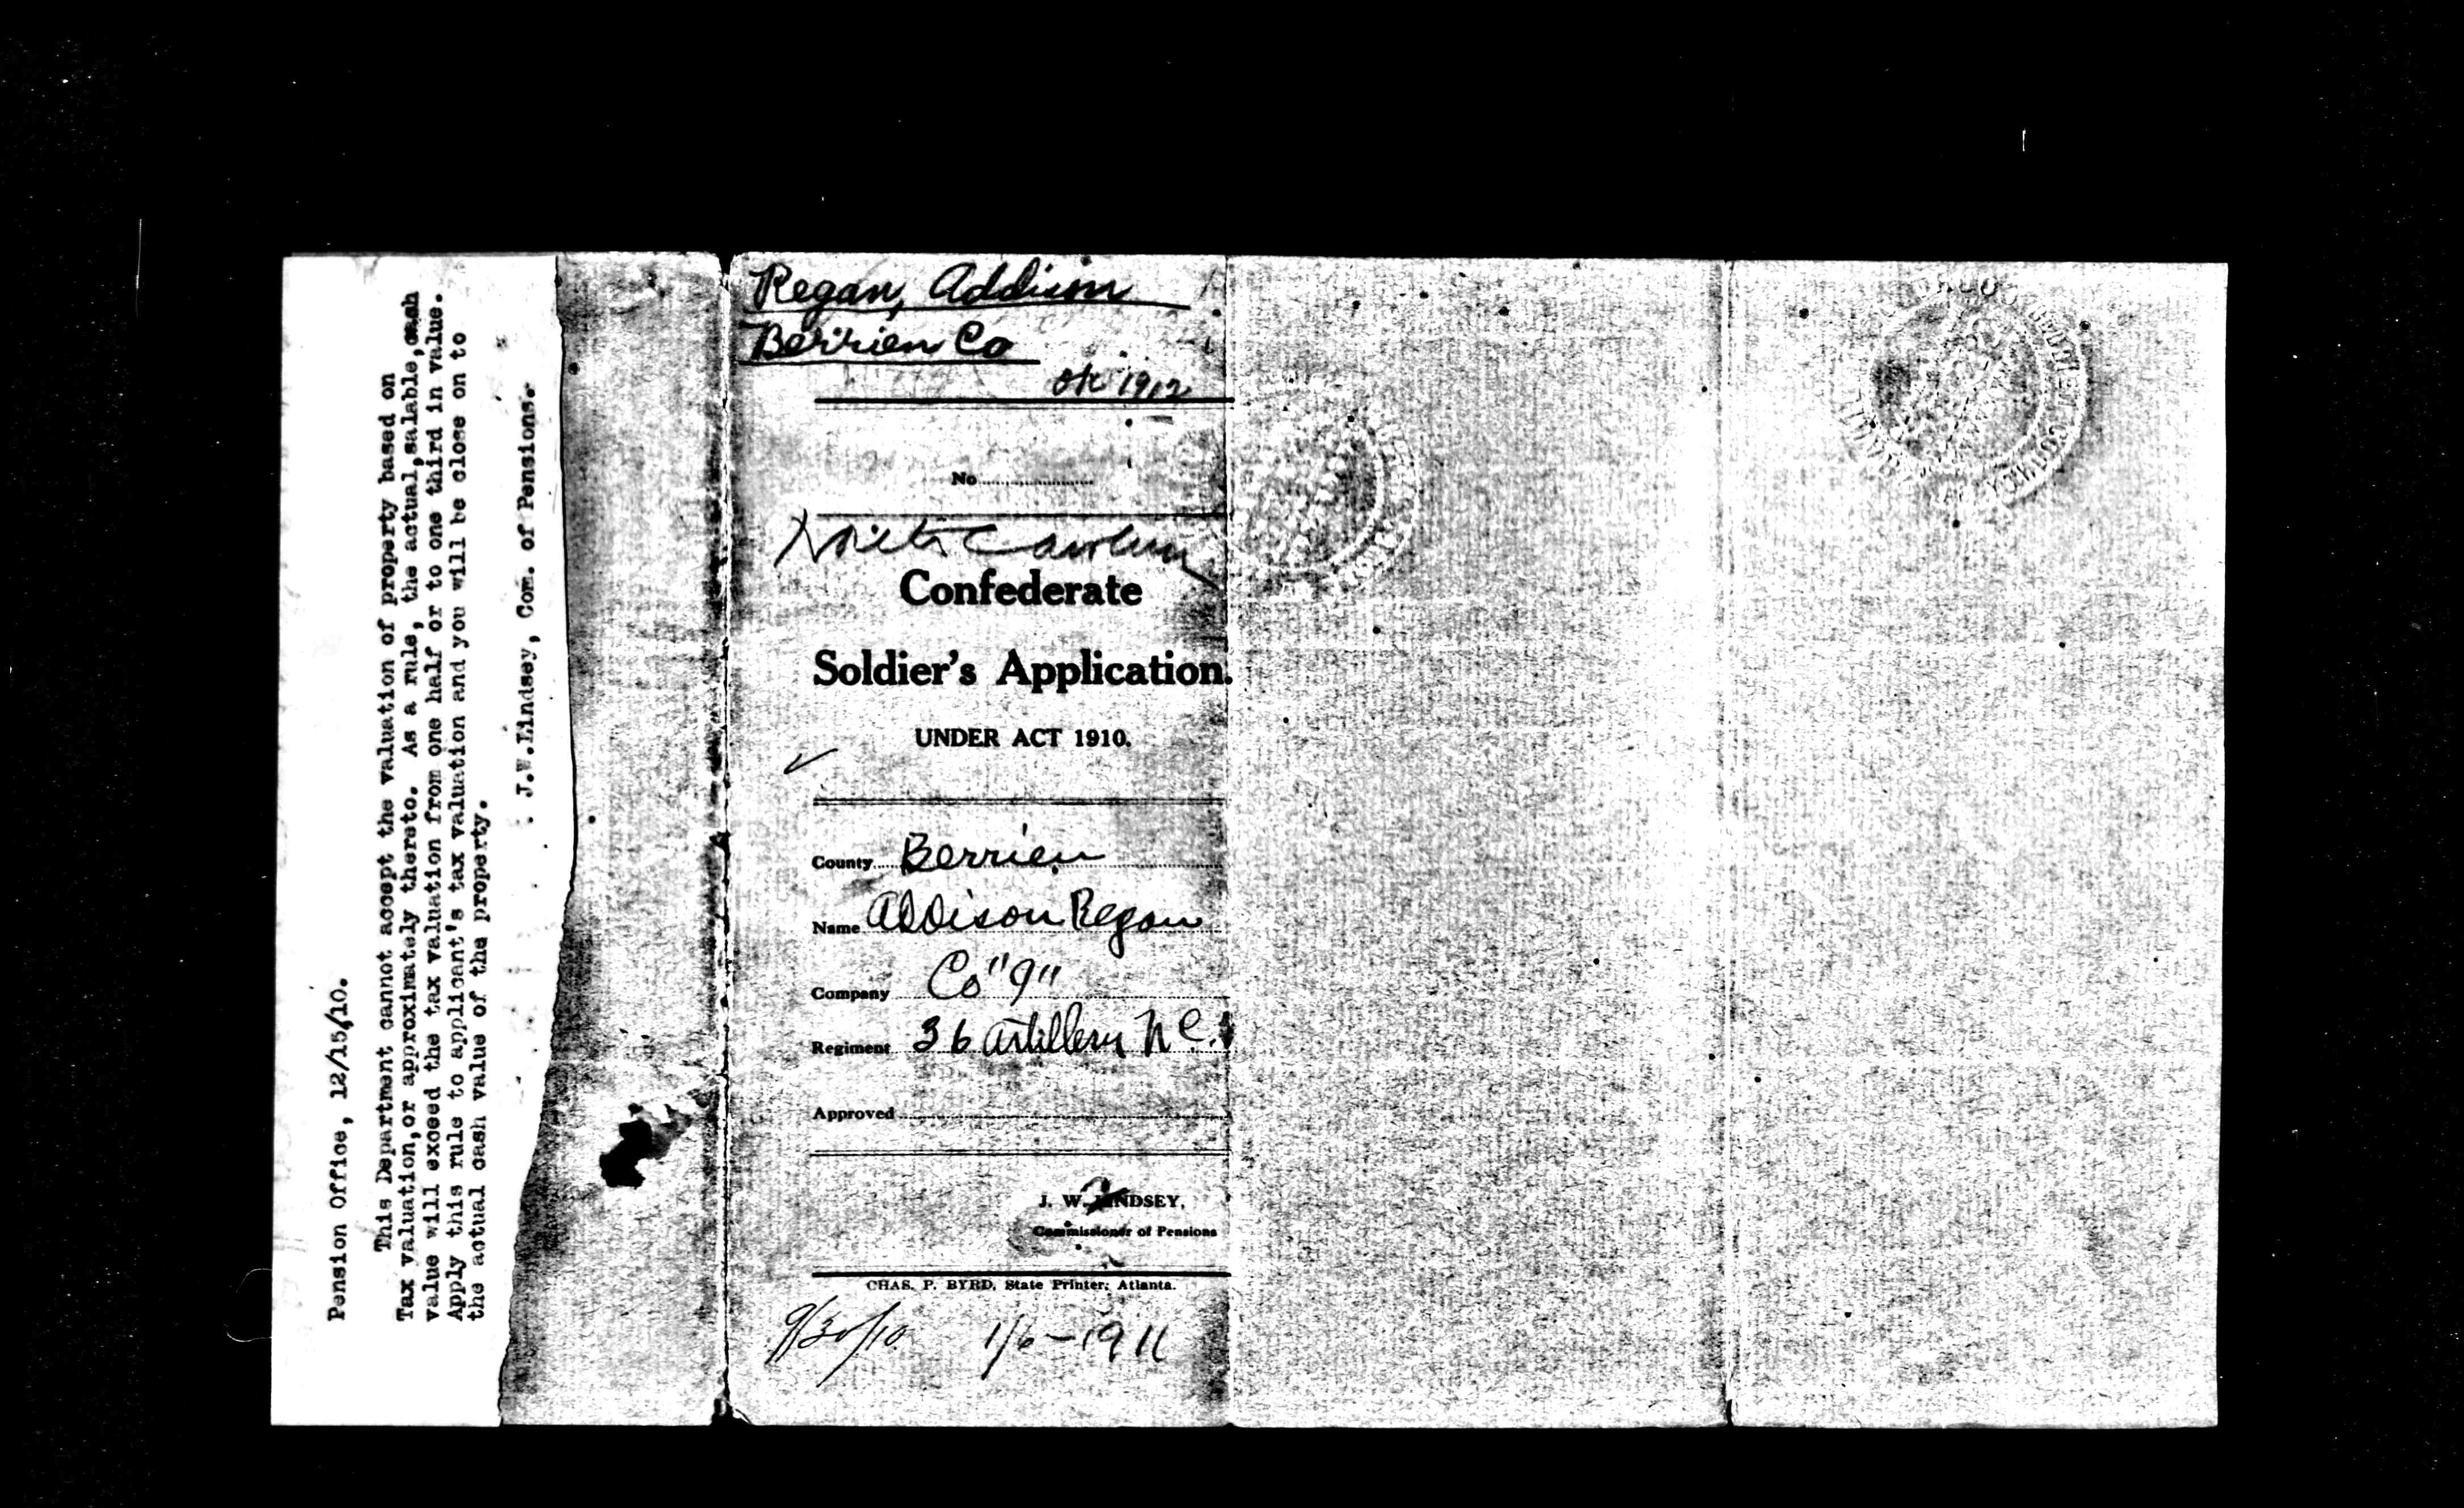 Pension Office, 12/15/10.
This Department cannot accept the valuation of property based on
Tax valuation,or approximately thereto. As a rule, the actual,salable,cash
value will exceed the tax valuation from one half or to one third in value.
Apply this rule to applicant's tax valuation and you will be close on to
the actual cash value of the property.
J.W.Lindsey, Com. of Pensions.
Regan, Addison
Berrien Co
ok 1912
No
North Carolina
Confederate
Soldier's Application.
UNDER ACT 1910.
County Berrien
Name Addison Regan
Company Co "9"
Regiment 36 Artillery N C.
Approved
J. W. LINDSEY,
Commissioner of Pensions
CHAS. P. BYRD, State Printer, Atlanta.
9/30/10 1/6-1911